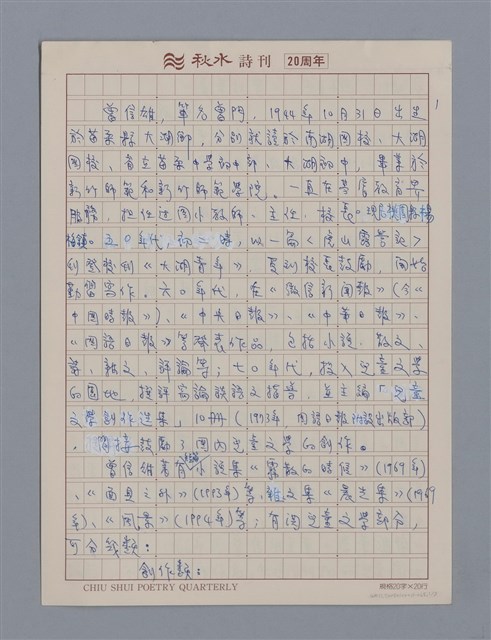 秋水 詩刊 20周年
1
曾信雄，筆名曾門，1944年10月31日出生
於苗栗縣大湖鄉，分別就讀於南湖國校、大湖
國校、省立苗栗中學初中部、大湖初中，畢業於
新竹師範和新竹師範學院。一直在基層教育界
服務，担任过國小教師、主任、校長。現居桃園縣楊
梅鎮。五〇年代，初二時，以一篇《虎山露營記》
刊登校刊《大湖青年》，受到校長鼓勵，開始
勤習寫作。六〇年代，在《徵信新聞報》（今《
中國時報》）、《中央日報》、《中華日報》、
《國語日報》等發表作品，包括小說、散文、
詩、雜文、評論等；七〇年代，投入兒童文學
的園地，撰評寫論談語文指音，並主編「兒童
文學創作選集」10册（1973年，國語日報附設出版部）
，間接鼓勵了國內兒童文學的創作。
曾信雄著有小說集《霧散的時候》（1969年）
、《面具之外》（1993年）等；雜文集《晨光集》（1969
年）、《風景》（1994年）等；有関兒童文學部分，
可分幾類：
創作類：
CHIU SHUI POETRY QUARTERLY
稿格20字×20行